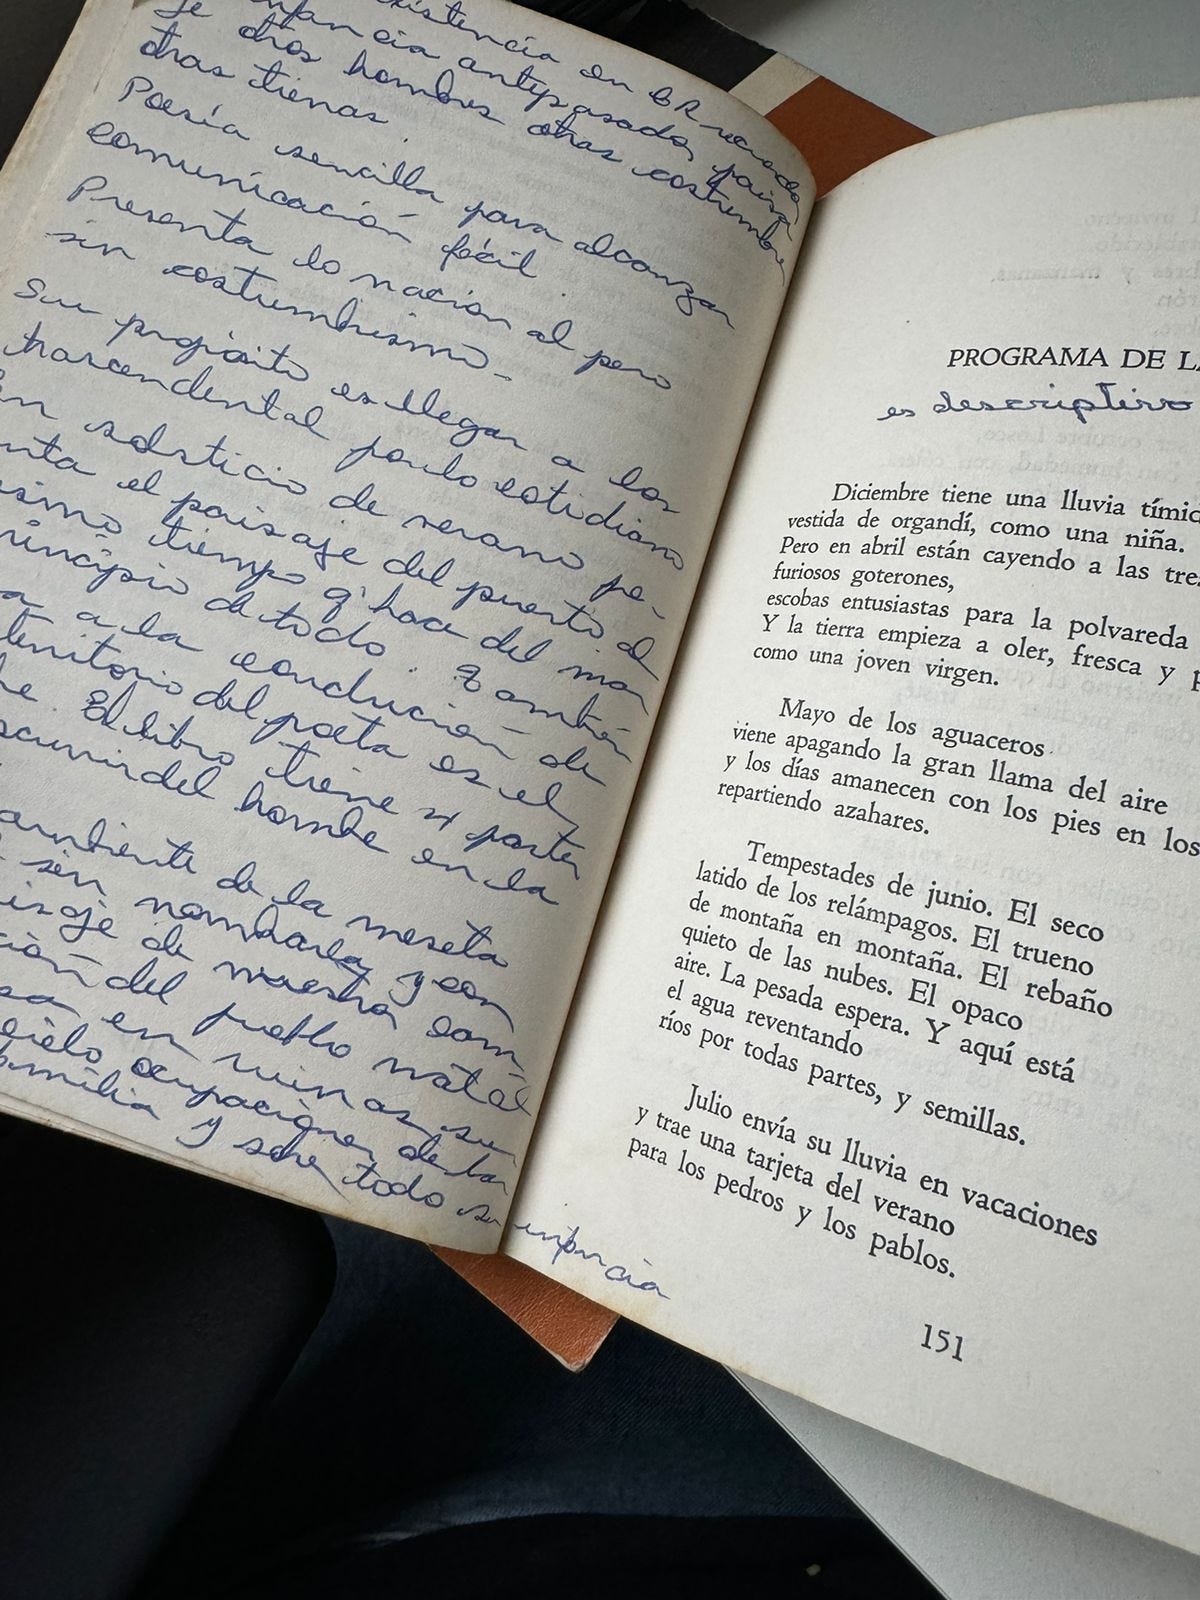 existencia en CR
infancia antepasados, paisa
je otros hombres otras costumbre
otras tierras.
Poesía sencilla para alcanzar
comunicación fácil.
Presenta lo nacional pero
sin costumbrismo.
Su propósito es llegar a los
trascendental por lo cotidiano
En solsticio de verano pe-
nta el paisaje del puerto al
ismo tiempo q' hace del mar
rincipio de todo. También
a la conducción de
territorio del poeta es el
El libro tiene 4 partes
scurrir del hombre en la
ambiente de la meseta
sin nombrarla y con
isaje de nuestra
ción del pueblo natal
sa en ruinas su
cielo ocupaciones de la
familia y sobre todo su infancia
PROGRAMA DE LA
es descriptivo
Diciembre tiene una lluvia tímid
vestida de organdí, como una niña.
Pero en abril están cayendo a las tres
furiosos goterones,
escobas entusiastas para la polvareda
Y la tierra empieza a oler, fresca y p
como una joven virgen.
Mayo de los aguaceros
viene apagando la gran llama del aire
y los días amanecen con los pies en los
repartiendo azahares.
Tempestades de junio. El seco
latido de los relámpagos. El trueno
de montaña en montaña. El rebaño
quieto de las nubes. El opaco
aire. La pesada espera. Y aquí está
el agua reventando
ríos por todas partes, y semillas.
Julio envía su lluvia en vacaciones
y trae una tarjeta del verano
para los pedros y los pablos.
151